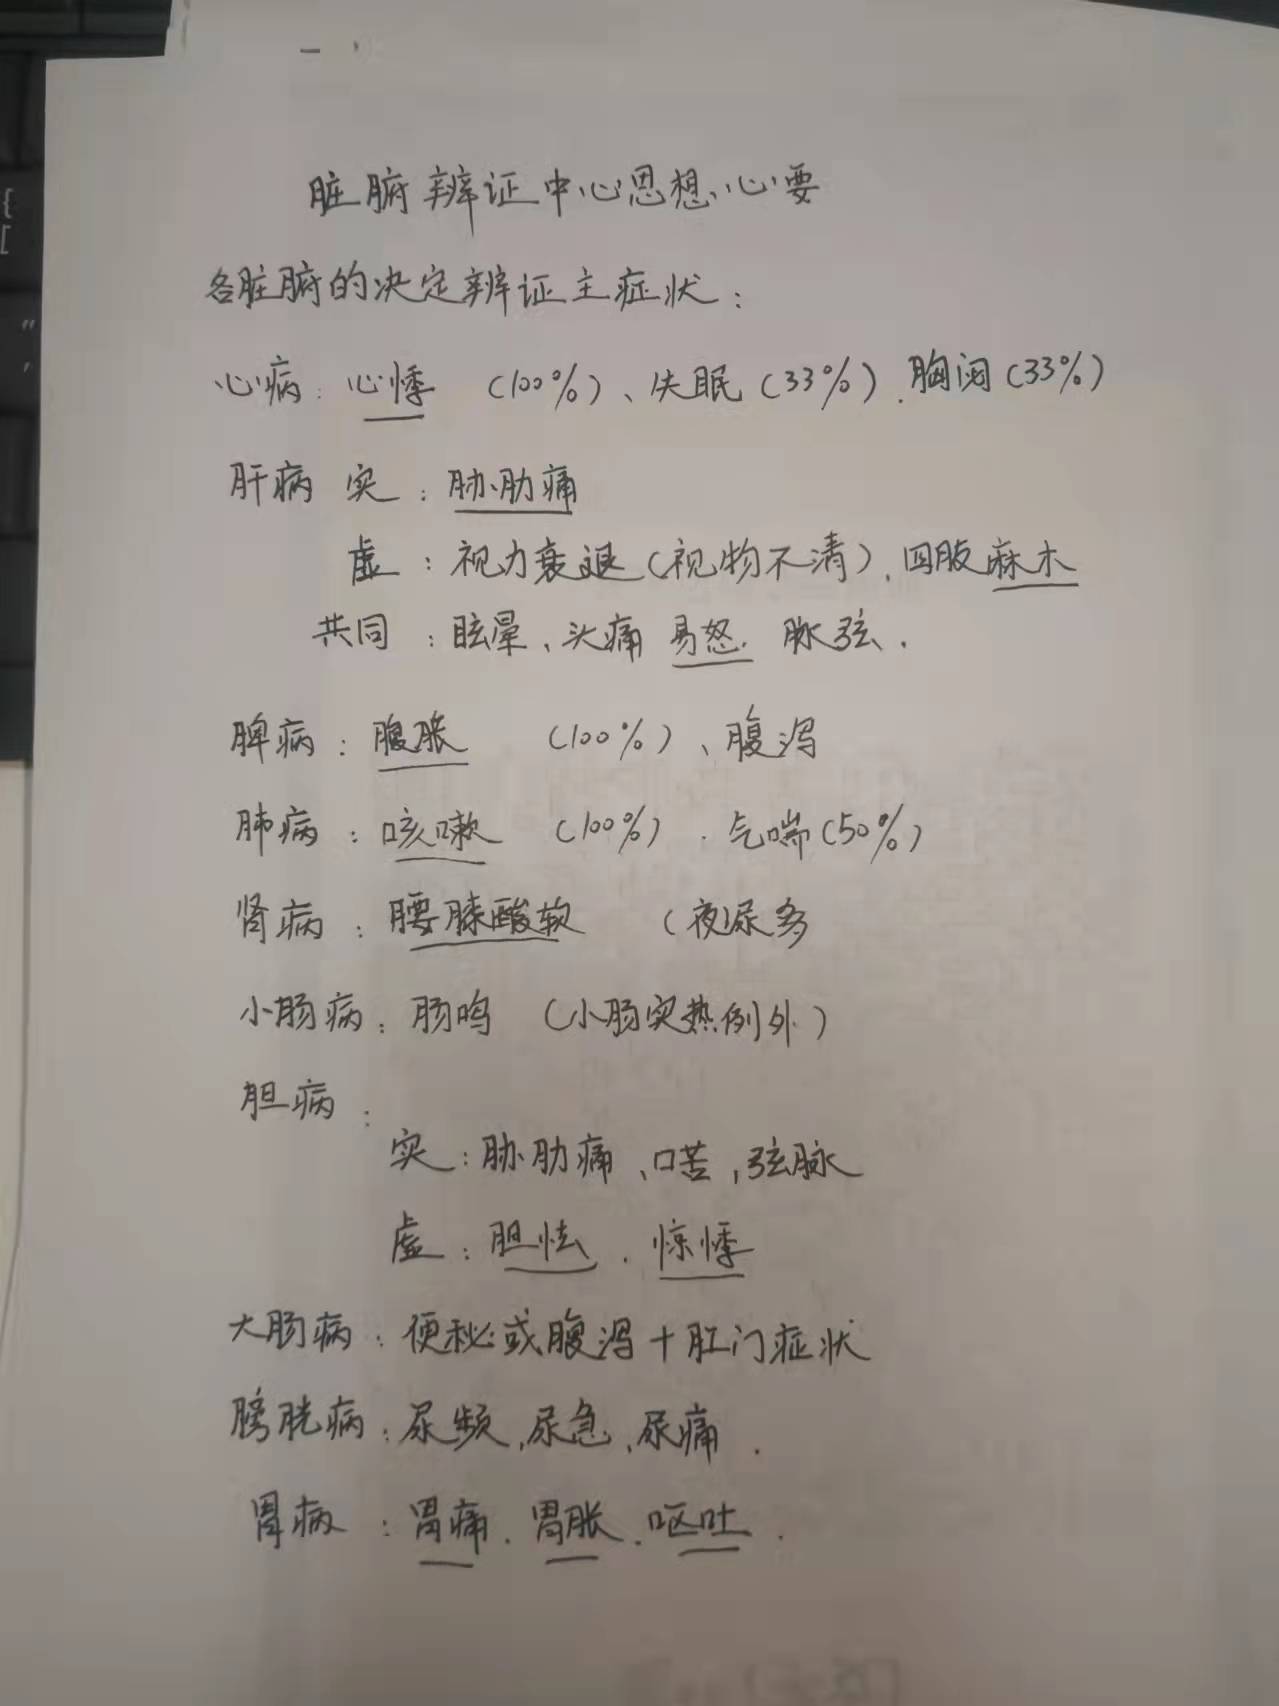 脏腑辨证中心思想心要
各脏腑的决定辨证主症状：
心病：心悸 （100%）、失眠（33%）.胸闷（33%）
肝病 实：胁肋痛
虚：视力衰退（视物不清）、四肢麻木
共同：眩晕、头痛 易怒. 脉弦.
脾病：腹胀 （100%）、腹泻
肺病：咳嗽 （100%）.气喘（50%）
肾病：腰膝酸软 （夜尿多
小肠病：肠鸣 （小肠实热例外）
胆病：
实：胁肋痛、口苦，弦脉
虚：胆怯.惊悸
大肠病：便秘或腹泻+肛门症状
膀胱病：尿频，尿急，尿痛.
胃病：胃痛.胃胀.呕吐.